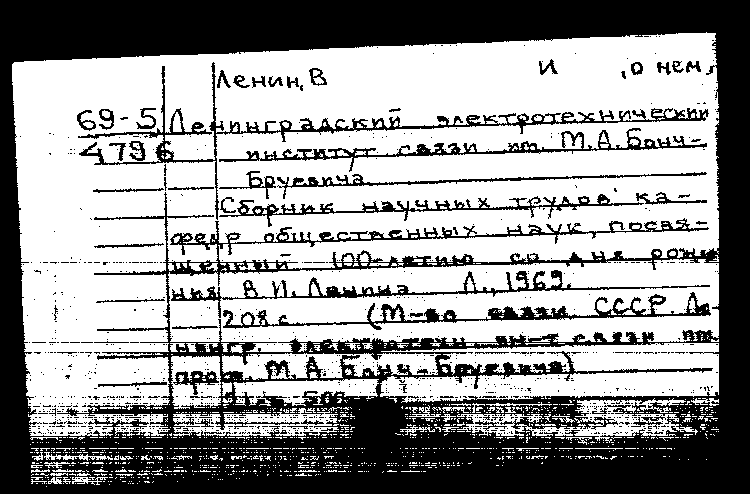 Ленин, В И , о нем,
69-5 Ленинградский электротехнический
4796 институт связи им. М.А. Бонч-
Бруевича
Сборник научных трудов ка-
федр общественных наук, посвя-
щенный 100-летию со дня рожде
ния В.И. Ленина Л., 1969.
208 с (М-во связи СССР. Ле-
нингр. электротехн. ин-т связи им.
проф. М.А. Бонч-Бруевича)
21 см. 500